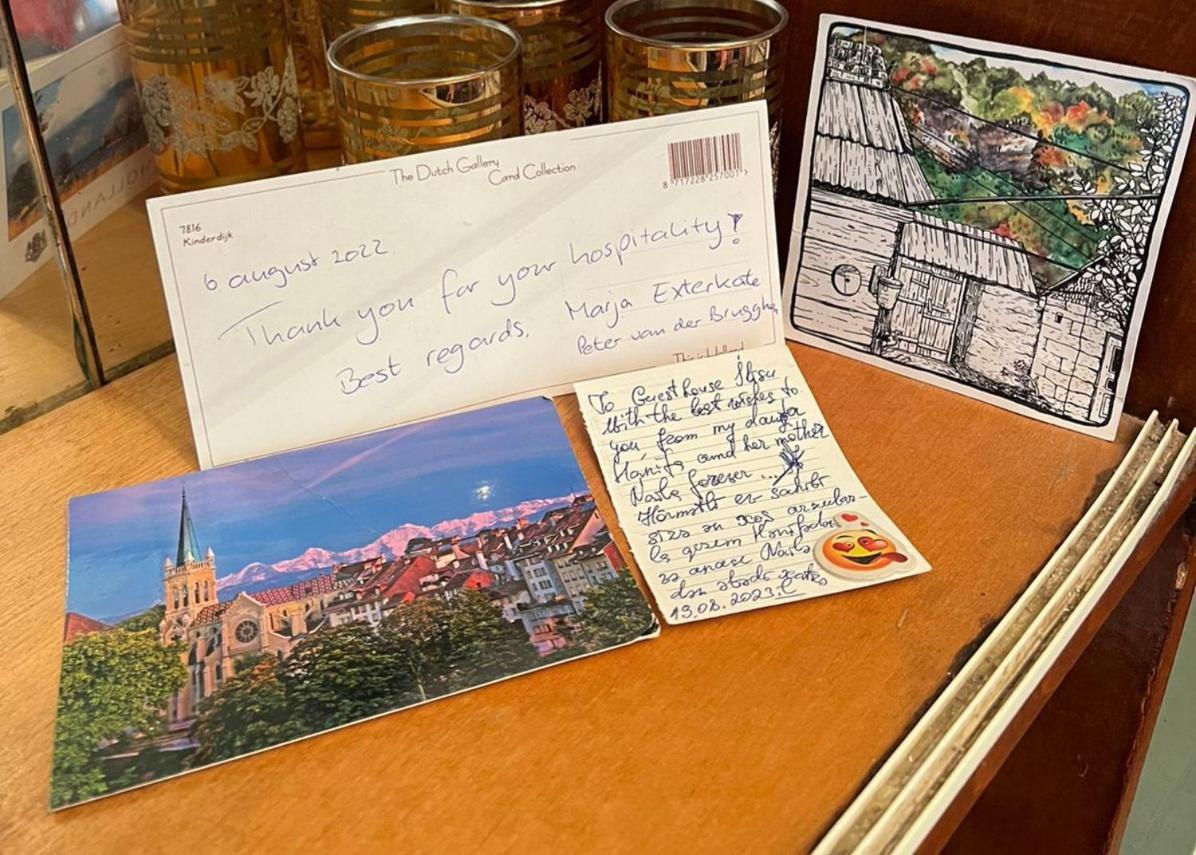 The Dutch Gallery
Card Collection
8 717228 257001 >
7816
Kinderdijk
6 august 2022
Thank you for your hospitality!
Best regards,
Marja Exterkate
Peter van der Brugghe
This is Holland
To Guesthouse Ilisu
With the best wishes to
you, from my daugter
Hanifa and her mother
Naila forever ...
Hörmətli ev sahibi
sizə ən xoş arzular-
la qızım Hanifədən
və anası Naila
dan
19.08.2023
HOLLAND